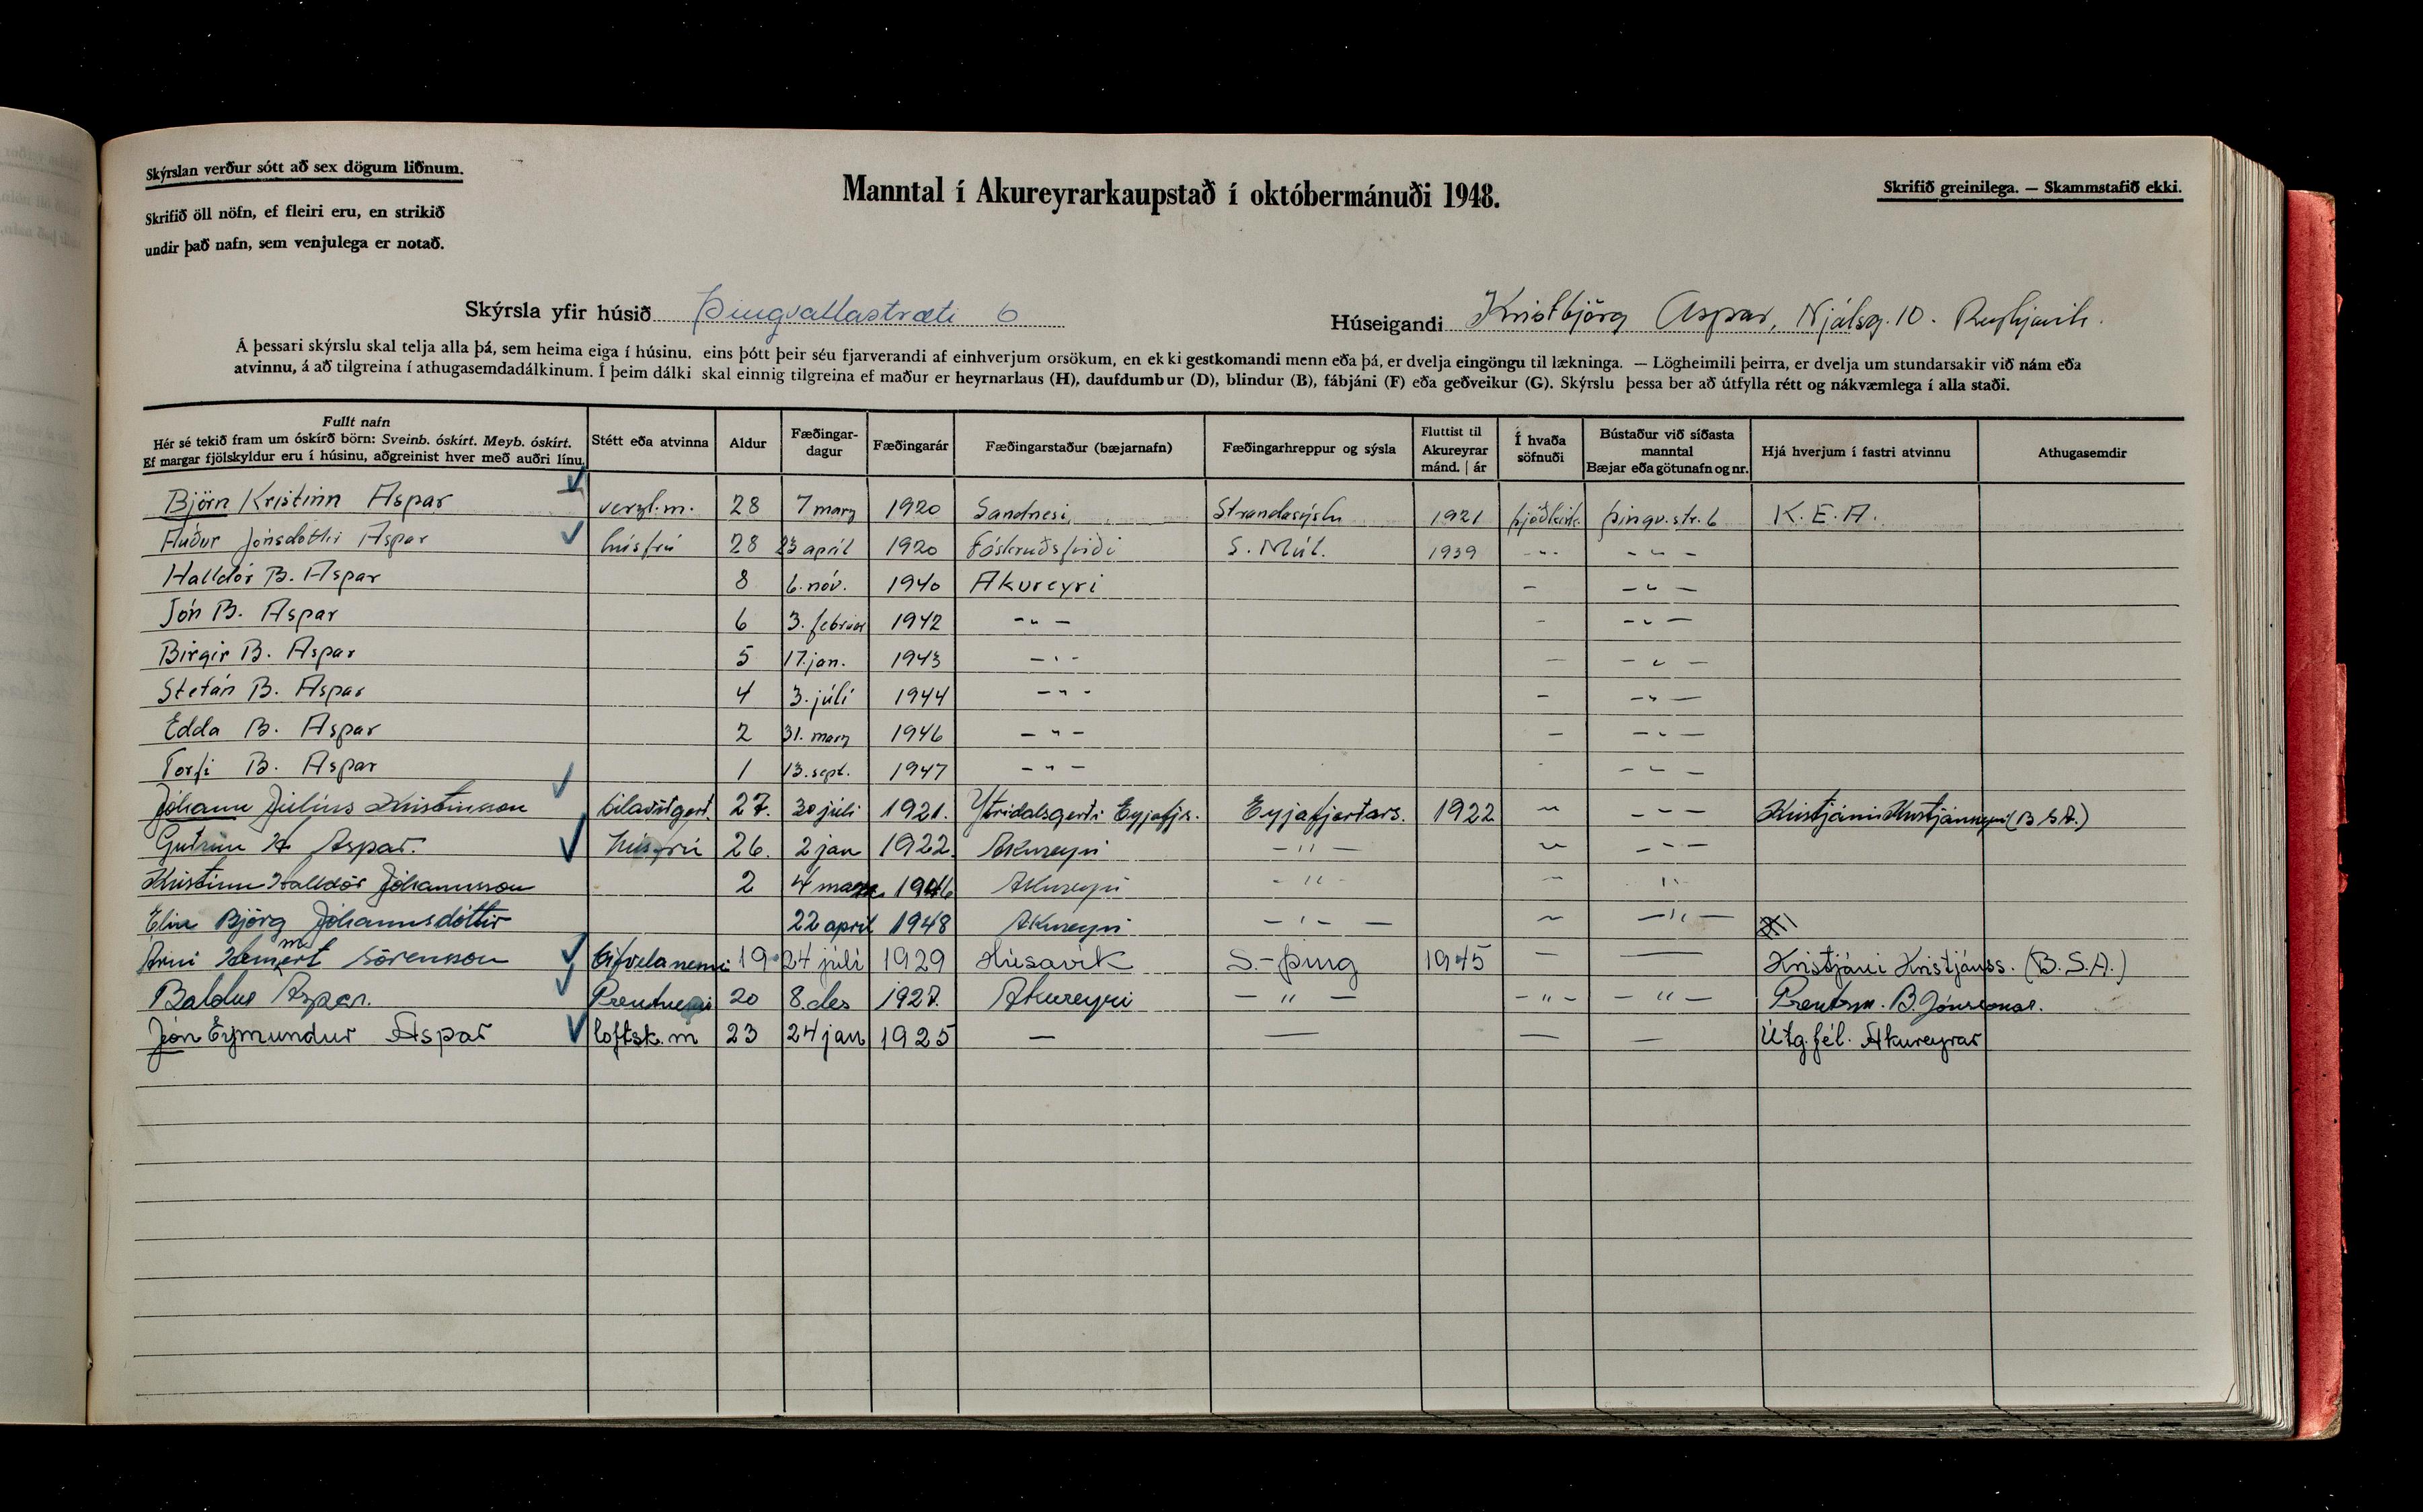 Skýrslan verður sótt að sex dögum liðnum.
Skrifið öll nöfn, ef fleiri eru, en strikið
undir það nafn, sem venjulega er notað.
Manntal í Akureyrarkaupstað í októbermánuði 1948.
Skrifið greinilega. — Skammstafið ekki.
Skýrsla yfir húsið Þingvallastræti 6
Húseigandi Kristbjörg Aspar, Njálsg. 10. Reykjavík.
Á þessari skýrslu skal telja alla þá, sem heima eiga í húsinu, eins þótt þeir séu fjarverandi af einhverjum orsökum, en ekki gestkomandi menn eða þá, er dvelja eingöngu til lækninga. — Lögheimili þeirra, er dvelja um stundarsakir við nám eða
atvinnu, á að tilgreina í athugasemdadálkinum. Í þeim dálki skal einnig tilgreina ef maður er heyrnarlaus (H), daufdumbur (D), blindur (B), fábjáni (F) eða geðveikur (G). Skýrslu þessa ber að útfylla rétt og nákvæmlega í alla staði.
Fullt nafn
Hér sé tekið fram um óskírð börn: Sveinb. óskírt. Meyb. óskírt.
Ef margar fjölskyldur eru í húsinu, aðgreinist hver með auðri línu.
Stétt eða atvinna
Aldur
Fæðingar-
dagur
Fæðingarár
Fæðingarstaður (bæjarnafn)
Fæðingarhreppur og sýsla
Fluttist til
Akureyrar
mánd. | ár
Í hvaða
söfnuði
Bústaður við síðasta
manntal
Bæjar eða götunafn og nr.
Hjá hverjum í fastri atvinnu
Athugasemdir
Björn Kristinn Aspar verzl.m. 28 7 marz 1920 Sandnesi Strandasýslu 1921 þjóðkirk. Þingv.str. 6 K.E.A.
Auður Jónsdóttir Aspar húsfrú 28 23 apríl 1920 Fáskruðsfirði S. Múl. 1939 -"- - " -
Halldór B. Aspar 8 6. nóv. 1940 Akureyri - - " -
Jón B. Aspar 6 3. februar 1942 - " - - - " -
Birgir B. Aspar 5 17. jan. 1943 - " - - - " -
Stefán B. Aspar 4 3. júlí 1944 - " - - - " -
Edda B. Aspar 2 31. marz 1946 - " - - - " -
Torfi B. Aspar 1 13. sept. 1947 - " - - - " -
Jóhann Júlíus Kristinsson 27. 30 júlí 1921. Ytridalsgerði Eyjafjs. Eyjafjarðars. 1922 " - - - Kristjáni Kristjánssyni (B.S.A.)
Guðrún H Aspar. Húsfrú 26. 2 jan 1922. Akureyri - " - " - - -
Kristinn Halldór Jóhannsson 2 4 marz 1946 Akureyri - " - "
Elín Björg Jóhannsdóttir 22 apríl 1948 Akureyri - " - — " - " —
Árni Hemmert Sörensson bifvélanemi 19 24 júlí 1929 Húsavík S.-Þing 1945 — — Kristjáni Kristjánss. (B.S.A.)
Baldur Aspar. Prentnemi 20 8. des 1927. Akureyri — " — - " - — " — Prentsm. B. Jónssonar.
Jón Eymundur Aspar loftsk.m 23 24 jan 1925 — — — — Útg.fél. Akureyrar